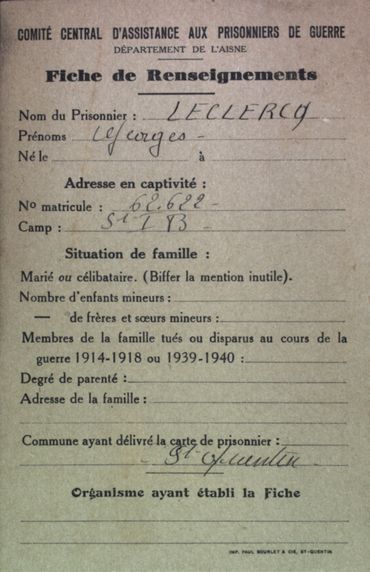 COMITÉ CENTRAL D'ASSISTANCE AUX PRISONNIERS DE GUERRE
DÉPARTEMENT DE L'AISNE
Fiche de Renseignements
Nom du Prisonnier : LECLERCQ
Prénoms Georges -
Né le à
Adresse en captivité :
No matricule : 62.622 -
Camp : St I B
Situation de famille :
Marié ou célibataire. (Biffer la mention inutile).
Nombre d'enfants mineurs :
— de frères et sœurs mineurs :
Membres de la famille tués ou disparus au cours de la
guerre 1914-1918 ou 1939-1940 :
Degré de parenté :
Adresse de la famille :
Commune ayant délivré la carte de prisonnier :
St Quentin
Organisme ayant établi la Fiche
IMP. PAUL BOURLET & CIE, ST-QUENTIN